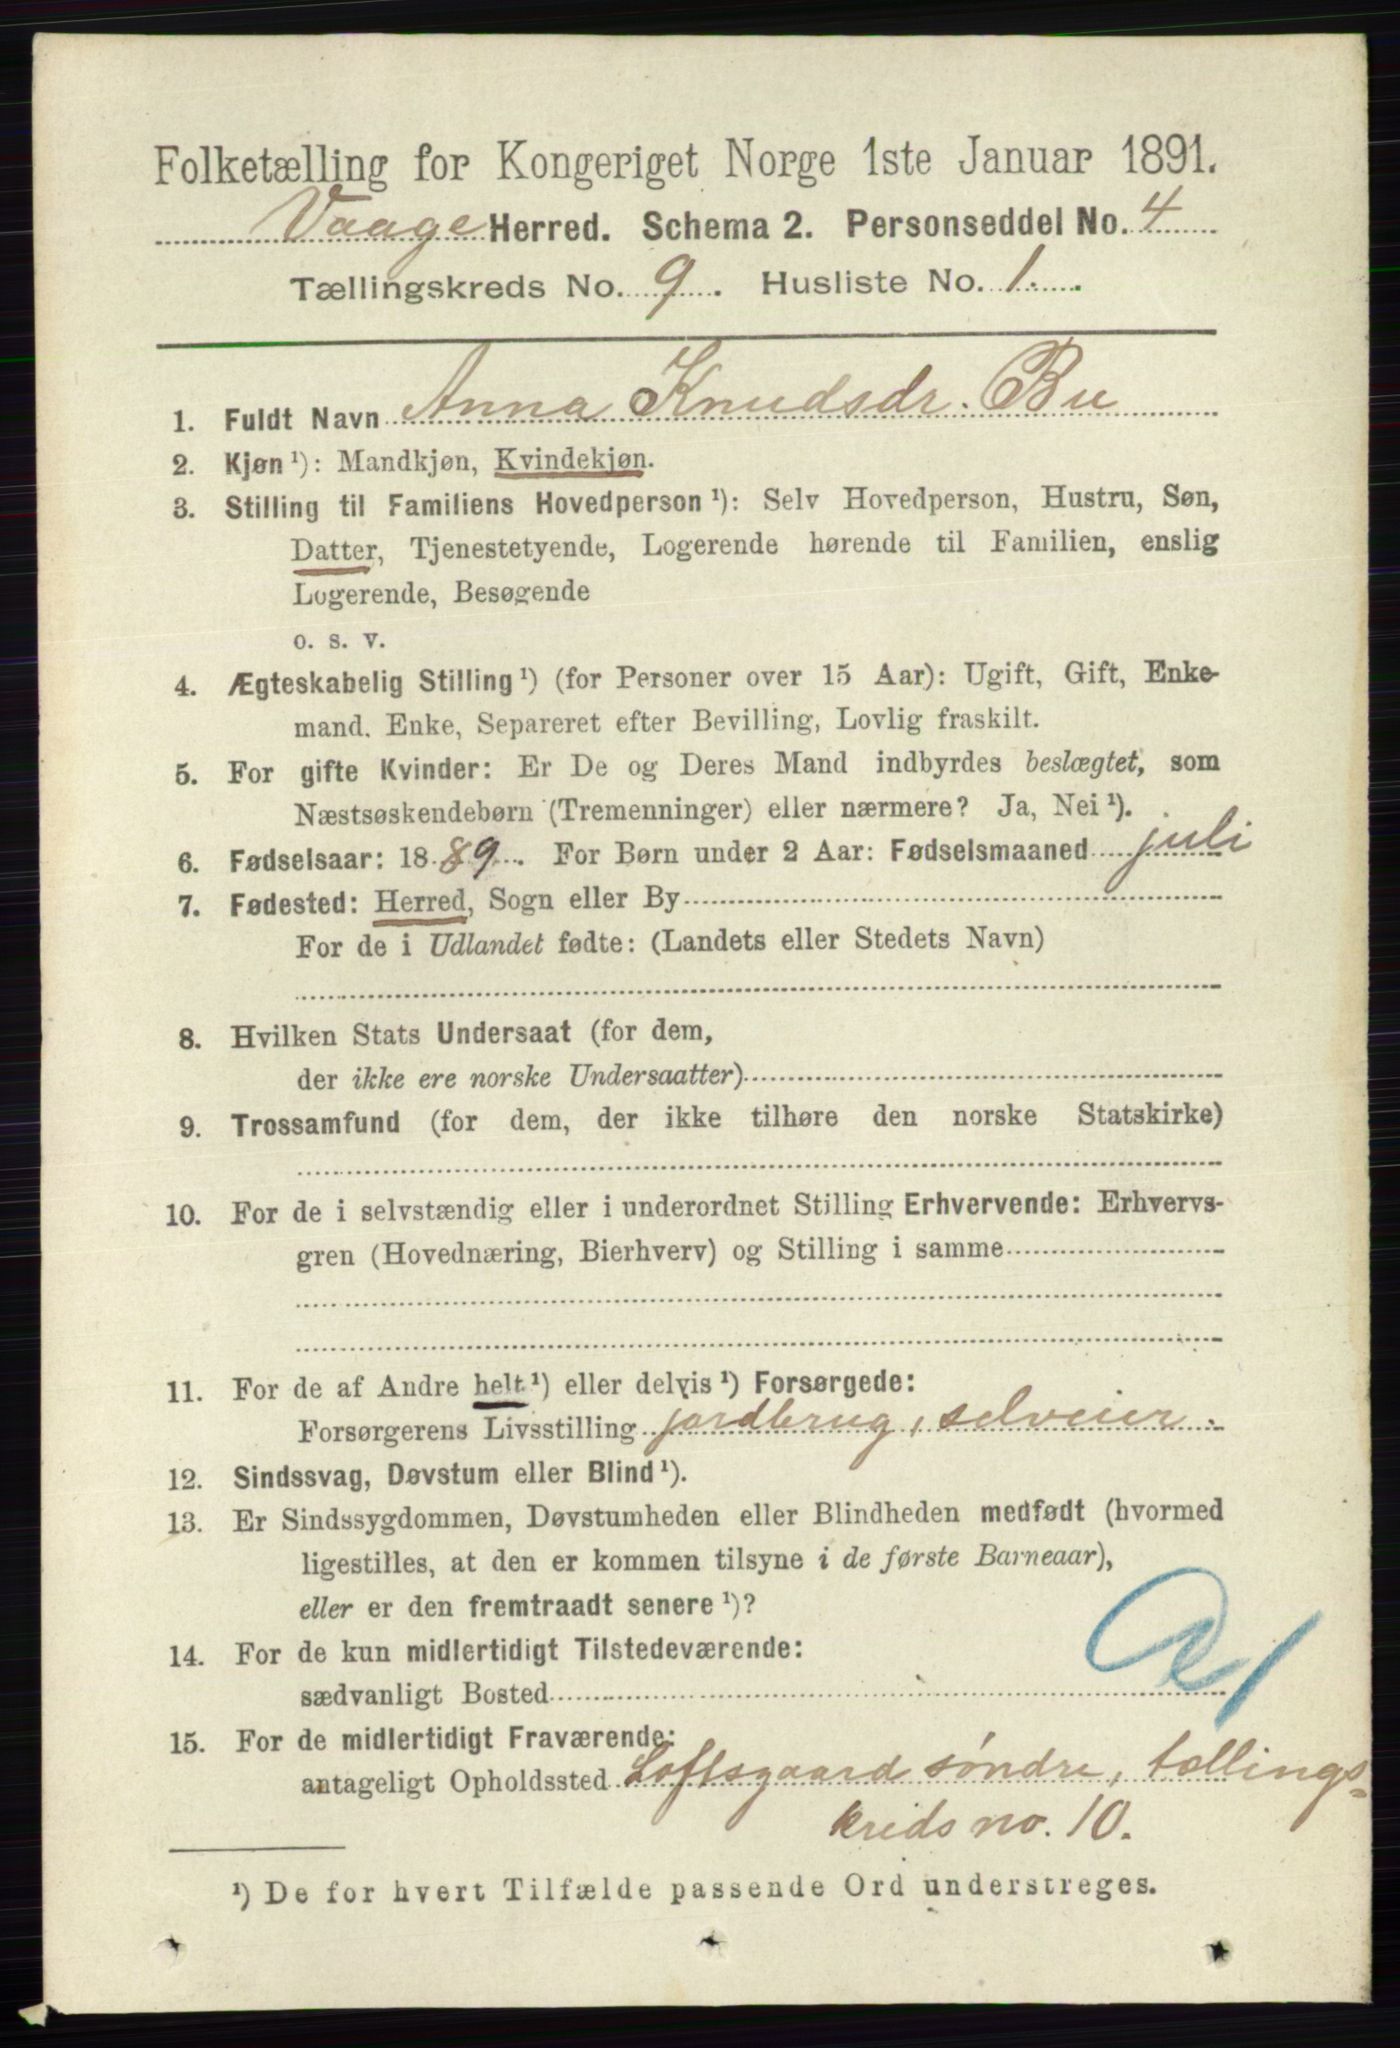 Folketælling for Kongeriget Norge 1ste Januar 1891.
Vaage Herred. Schema 2. Personseddel No. 4
Tællingskreds No. 9. Husliste No. 1.
1. Fuldt Navn Anna Knudsdr. Bu
2. Kjøn¹): Mandkjøn, Kvindekjøn.
3. Stilling til Familiens Hovedperson¹): Selv Hovedperson, Hustru, Søn,
Datter, Tjenestetyende, Logerende hørende til Familien, enslig
Logerende, Besøgende
o. s. v.
4. Ægteskabelig Stilling¹) (for Personer over 15 Aar): Ugift, Gift, Enke-
mand. Enke, Separeret efter Bevilling, Lovlig fraskilt.
5. For gifte Kvinder: Er De og Deres Mand indbyrdes beslægtet, som
Næstsøskendebørn (Tremenninger) eller nærmere? Ja, Nei¹).
6. Fødselsaar: 1889. For Børn under 2 Aar: Fødselsmaaned juli
7. Fødested: Herred, Sogn eller By
For de i Udlandet fødte: (Landets eller Stedets Navn)
8. Hvilken Stats Undersaat (for dem,
der ikke ere norske Undersaatter)
9. Trossamfund (for dem, der ikke tilhøre den norske Statskirke)
10. For de i selvstændig eller i underordnet Stilling Erhvervende: Erhvervs-
gren (Hovednæring, Bierhverv) og Stilling i samme
11. For de af Andre helt¹) eller delvis¹) Forsørgede:
Forsørgerens Livsstilling jordbrug, selveier.
12. Sindssvag, Døvstum eller Blind¹).
13. Er Sindssygdommen, Døvstumheden eller Blindheden medfødt (hvormed
ligestilles, at den er kommen tilsyne i de første Barneaar),
eller er den fremtraadt senere¹)?
14. For de kun midlertidigt Tilstedeværende:
sædvanligt Bosted
15. For de midlertidigt Fraværende:
antageligt Opholdssted Loftsgaard søndre, tællings-
kreds no. 10.
¹) De for hvert Tilfælde passende Ord understreges.